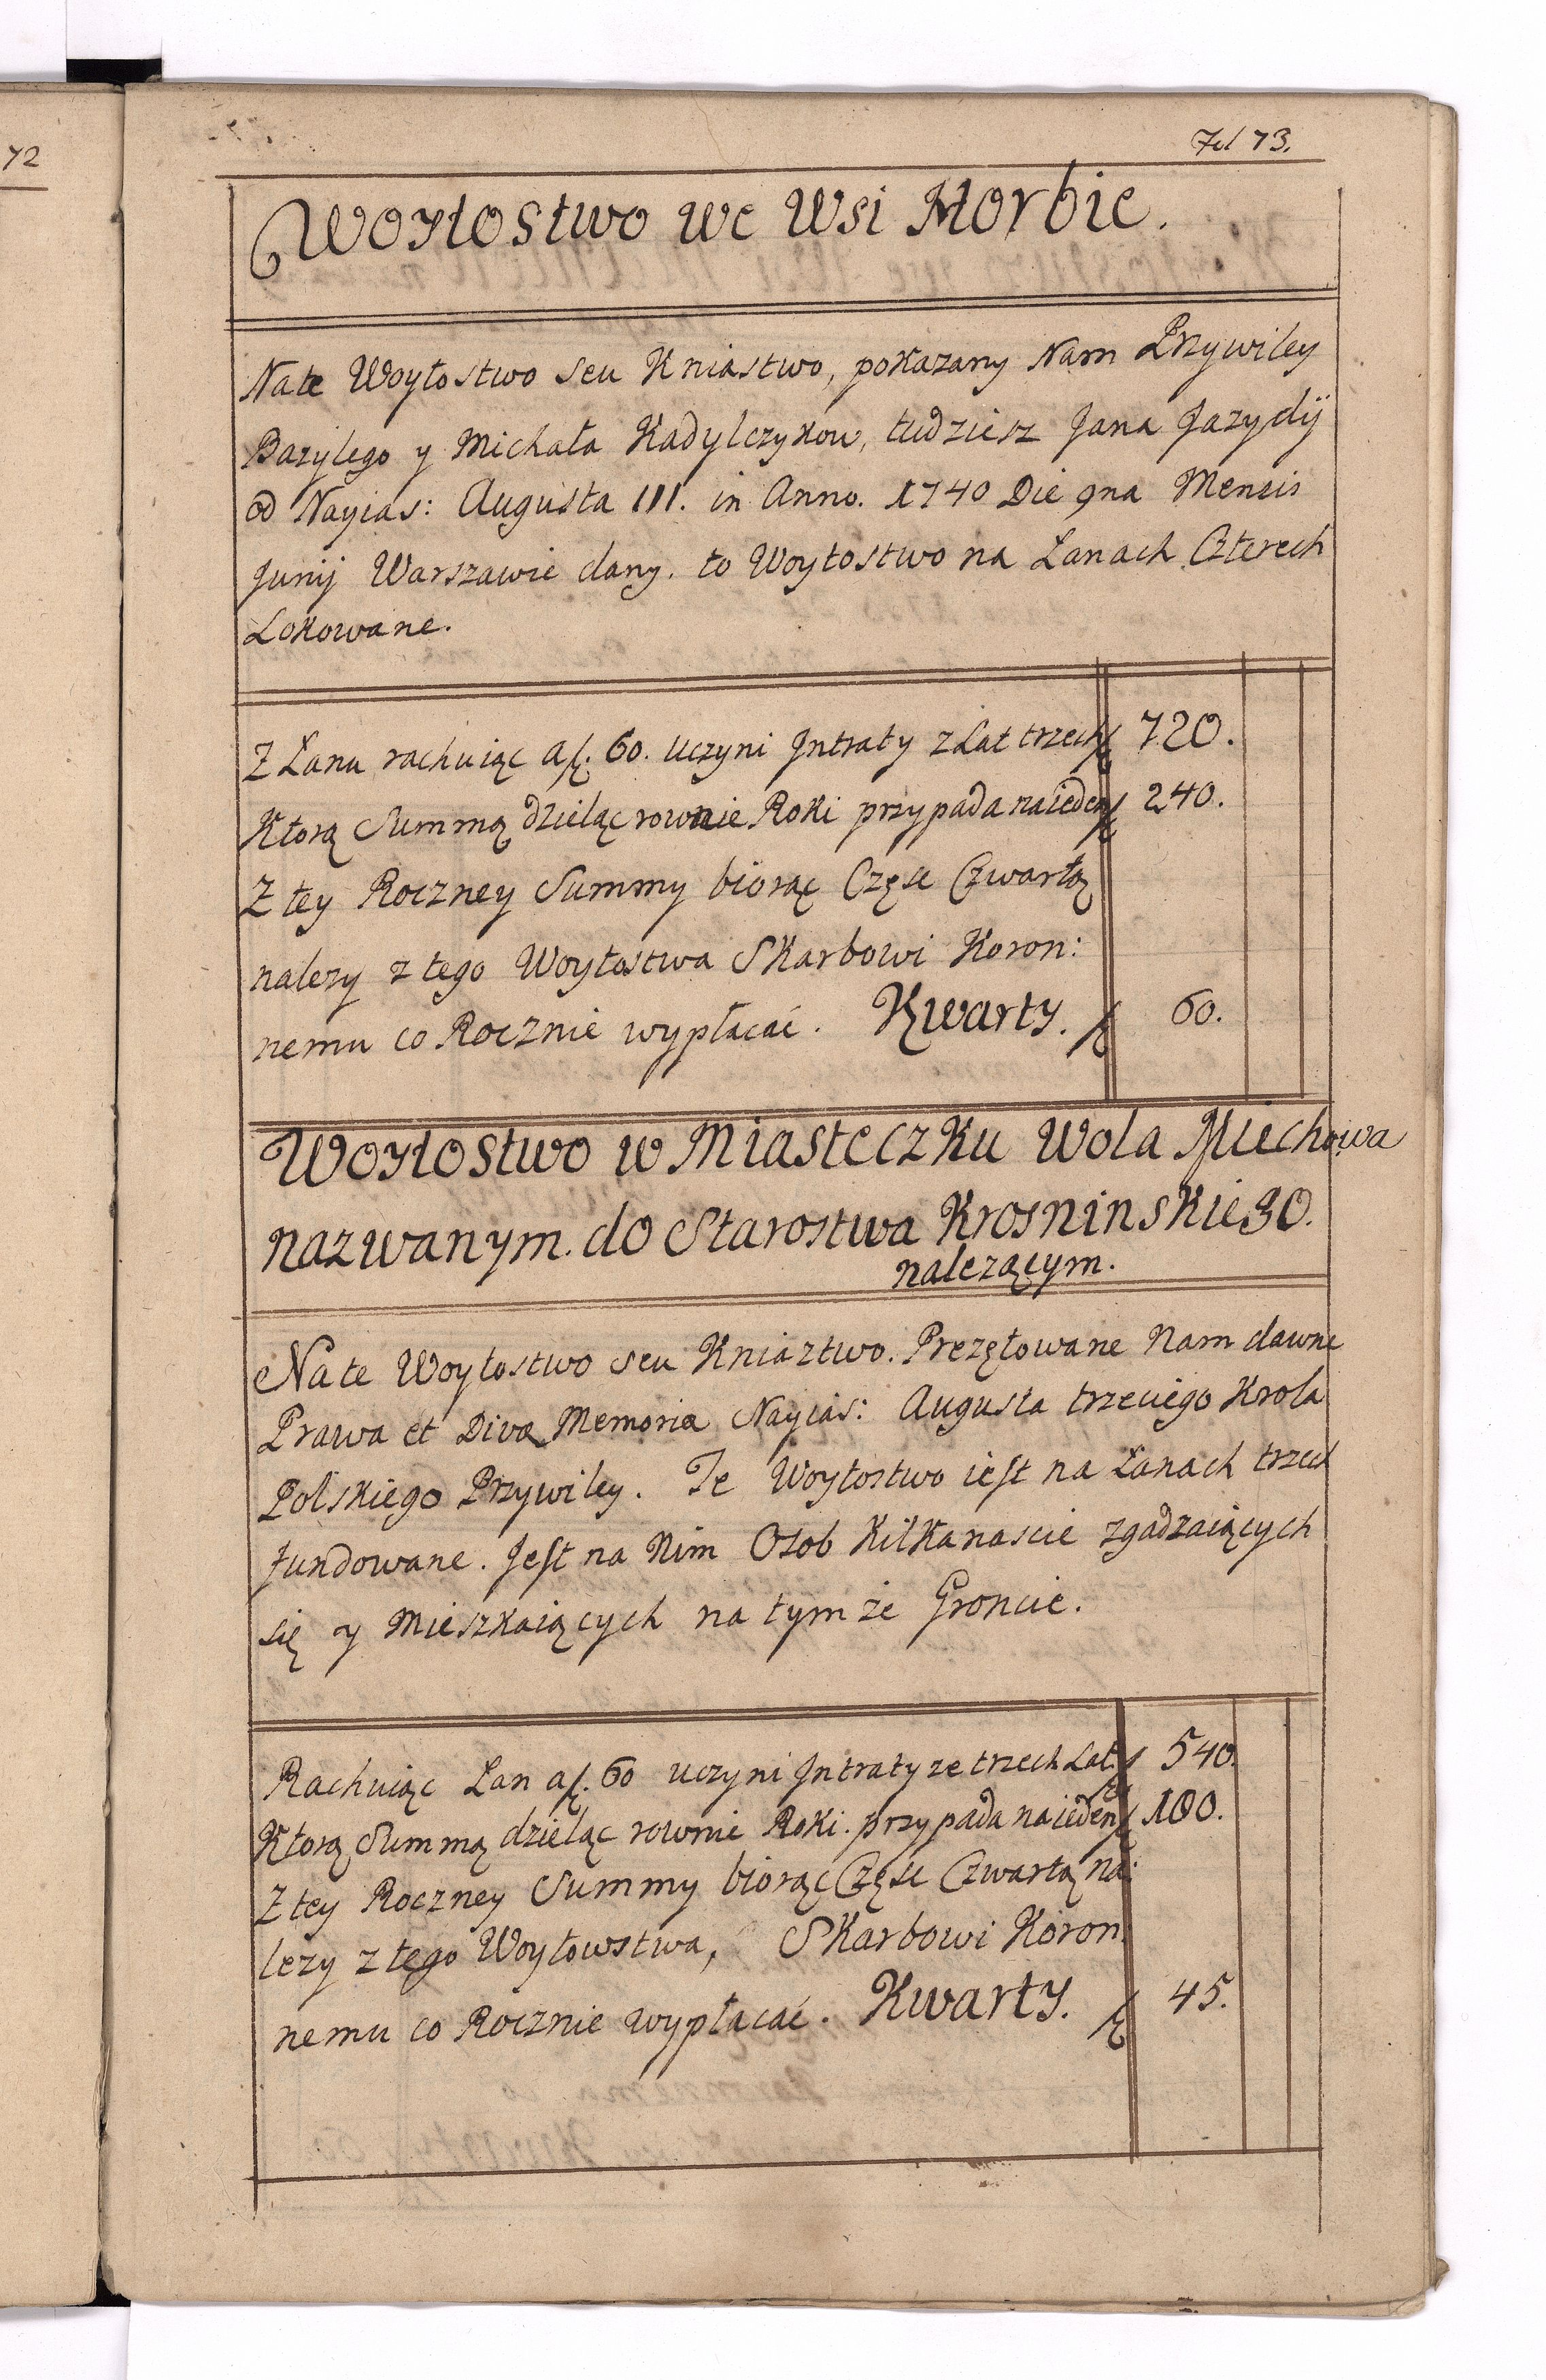 72
Fol 73.
Woytostwo we Wsi Horbie.
Na te Woytostwo seu Kniastwo, pokazany Nam Przywiley
Bazylego y Michała Kadylczykow, tudziesz Jana Jazydij
od Nayias: Augusta III. in Anno. 1740 Die 9na Mensis
Junij Warszawie dany. to Woytostwo na Lanach Czterech
Lokowane.
Z Lanu rachuiąc a f. 60. uczyni Jntraty z Lat trzech f 720.
Ktorą Summą dzieląc rownie Roki przypada na ieden f 240.
Z tey Roczney Summy biorąc Częsc Czwartą
nalezy z tego Woytostwa Skarbowi Koron:
nemu co Rocznie wypłacać. Kwarty. f 60.
Woytostwo w Miasteczku Wola Miechowa
nazwanym. do Starostwa Krosninskiego.
nalezącym.
Na te Woytostwo seu Kniaztwo. Prezętowane Nam dawne
Prawa et Divæ Memoriæ Nayias: Augusta trzeciego Krola
Polskiego Przywiley. Te Woytostwo iest na Lanach trzech
fundowane. Jest na Nim Osob Kilkanascie zgadzaiących
się y Mieszkaiących na tym że Groncie.
Rachuiąc Lan a f. 60 uczyni Jntraty ze trzech Lat. f 540.
Ktorą Summą dzieląc rownie Roki. przypada na ieden f 180.
Z tey Roczney Summy biorąc Częsc Czwartą na:
lezy z tego Woytowstwa, Skarbowi Koron:
nemu co Rocznie wypłacać. Kwarty. f 45.